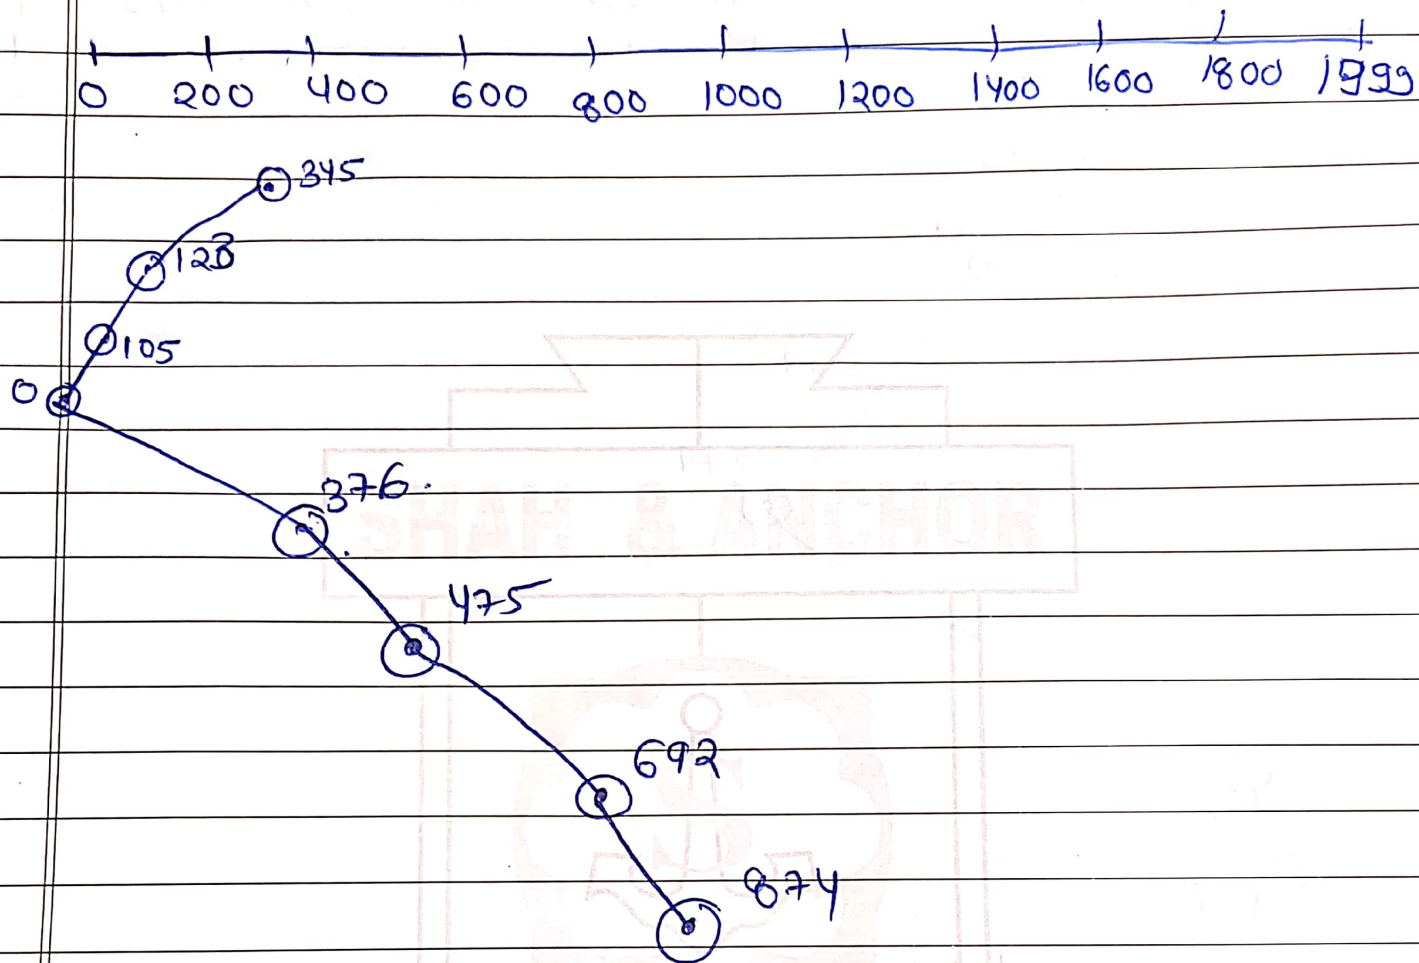 0 200 400 600 800 1000 1200 1400 1600 1800 1999
345
123
105
0
376.
475
SHAH & ANCHOR
692
874